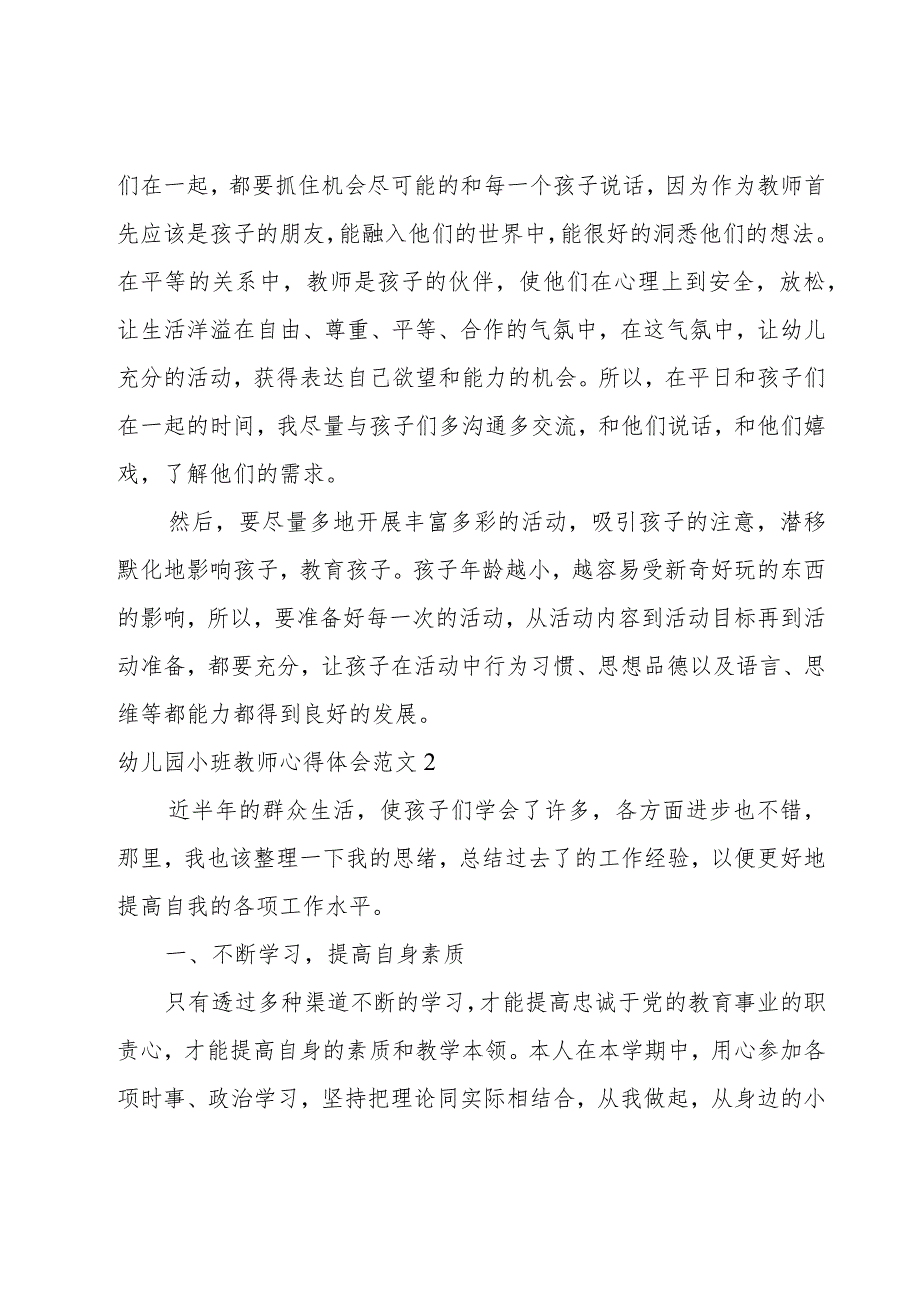 们在一起，都要抓住机会尽可能的和每一个孩子说话，因为作为教师首
先应该是孩子的朋友，能融入他们的世界中，能很好的洞悉他们的想法。
在平等的关系中，教师是孩子的伙伴，使他们在心理上到安全，放松，
让生活洋溢在自由、尊重、平等、合作的气氛中，在这气氛中，让幼儿
充分的活动，获得表达自己欲望和能力的机会。所以，在平日和孩子们
在一起的时间，我尽量与孩子们多沟通多交流，和他们说话，和他们嬉
戏，了解他们的需求。
然后，要尽量多地开展丰富多彩的活动，吸引孩子的注意，潜移
默化地影响孩子，教育孩子。孩子年龄越小，越容易受新奇好玩的东西
的影响，所以，要准备好每一次的活动，从活动内容到活动目标再到活
动准备，都要充分，让孩子在活动中行为习惯、思想品德以及语言、思
维等都能力都得到良好的发展。
幼儿园小班教师心得体会范文2
近半年的群众生活，使孩子们学会了许多，各方面进步也不错，
那里，我也该整理一下我的思绪，总结过去了的工作经验，以便更好地
提高自我的各项工作水平。
一、不断学习，提高自身素质
只有透过多种渠道不断的学习，才能提高忠诚于党的教育事业的职
责心，才能提高自身的素质和教学本领。本人在本学期中，用心参加各
项时事、政治学习，坚持把理论同实际相结合，从我做起，从身边的小